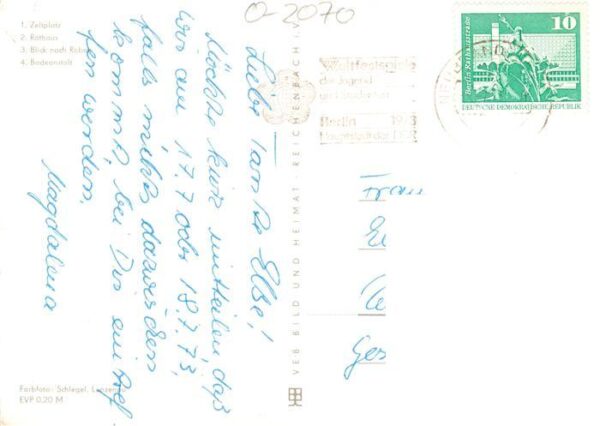 O-2070
1. Zeltplatz
2. Rathaus
3. Blick nach
4. Badeanstalt
Liebe Tante Elbe!
Möchte kurz mitteilen, daß
wir am 17.7 oder 18.7.73,
falls nichts dazwischen
kommt, bei Dir ein tref
fen werden.
Magdalena
Farbfoto: Schlegel,
EVP 0,20 M
VEB BILD UND HEIMAT · REICHENBACH i. V.
Weltfestspiele
der Jugend
und Studenten
Berlin
Hauptstadt der DDR
10
Berlin, Rathausstraße
DEUTSCHE DEMOKRATISCHE REPUBLIK
Frau
Ge